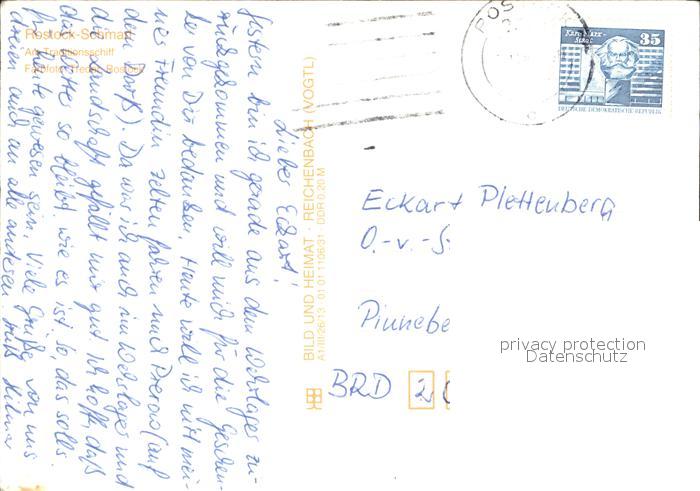 Rostock-Schmarl
Am Traditionsschiff
Farbfoto: Rostock
Lieber Eckart!
Gestern bin ich gerade aus dem Wehrlager zu-
rückgekommen und will mich für die Geschen-
ke von Dir bedanken. Heute will ich mit mei-
ner Freundin zelten fahren nach Prerow (auf
dem Darß). Da war ich auch im Wehrlager und
die Landschaft gefällt mir gut. Ich hoffe, daß
das so bleibt wie es ist, so, das solls
gewesen sein. Viele Grüße von uns
dreien auch an alle anderen.
BILD UND HEIMAT · REICHENBACH (VOGTL)
A1/III/26/13 01 01 1106/31 DDR 0,20 M
ROSTOCK
KARL-MARX-
STADT
35
DEUTSCHE DEMOKRATISCHE REPUBLIK
Eckart Plettenberg
O.-v.-S
Pinnebe
BRD 2
privacy protection
Datenschutz